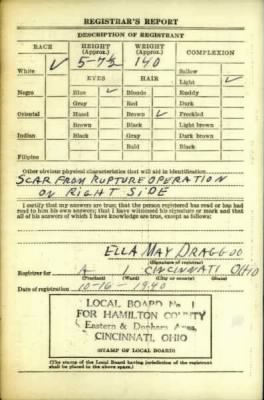 REGISTRAR'S REPORT
DESCRIPTION OF REGISTRANT
RACE HEIGHT (Approx.) WEIGHT (Approx.) COMPLEXION
5-7½ 140
White ✓ Sallow
EYES HAIR Light ✓
Negro Blue ✓ Blonde Ruddy
Gray Red Dark
Oriental Hazel Brown ✓ Freckled
Brown Black Light brown
Indian Black Gray Dark brown
Bald Black
Filipino
Other obvious physical characteristics that will aid in identification
SCAR FROM RUPTURE OPERATION
ON RIGHT SIDE
I certify that my answers are true; that the person registered has read or has had
read to him his own answers; that I have witnessed his signature or mark and that
all of his answers of which I have knowledge are true, except as follows:
ELLA MAY DRAGGOO
(Signature of registrar)
Registrar for A 1 CINCINNATI OHIO
(Precinct) (Ward) (City or county) (State)
Date of registration 10-16-1940
LOCAL BOARD No. 1
FOR HAMILTON COUNTY
Eastern & Donham Aves,
CINCINNATI, OHIO
(STAMP OF LOCAL BOARD)
(The stamp of the Local Board having jurisdiction of the registrant
shall be placed in the above space.)